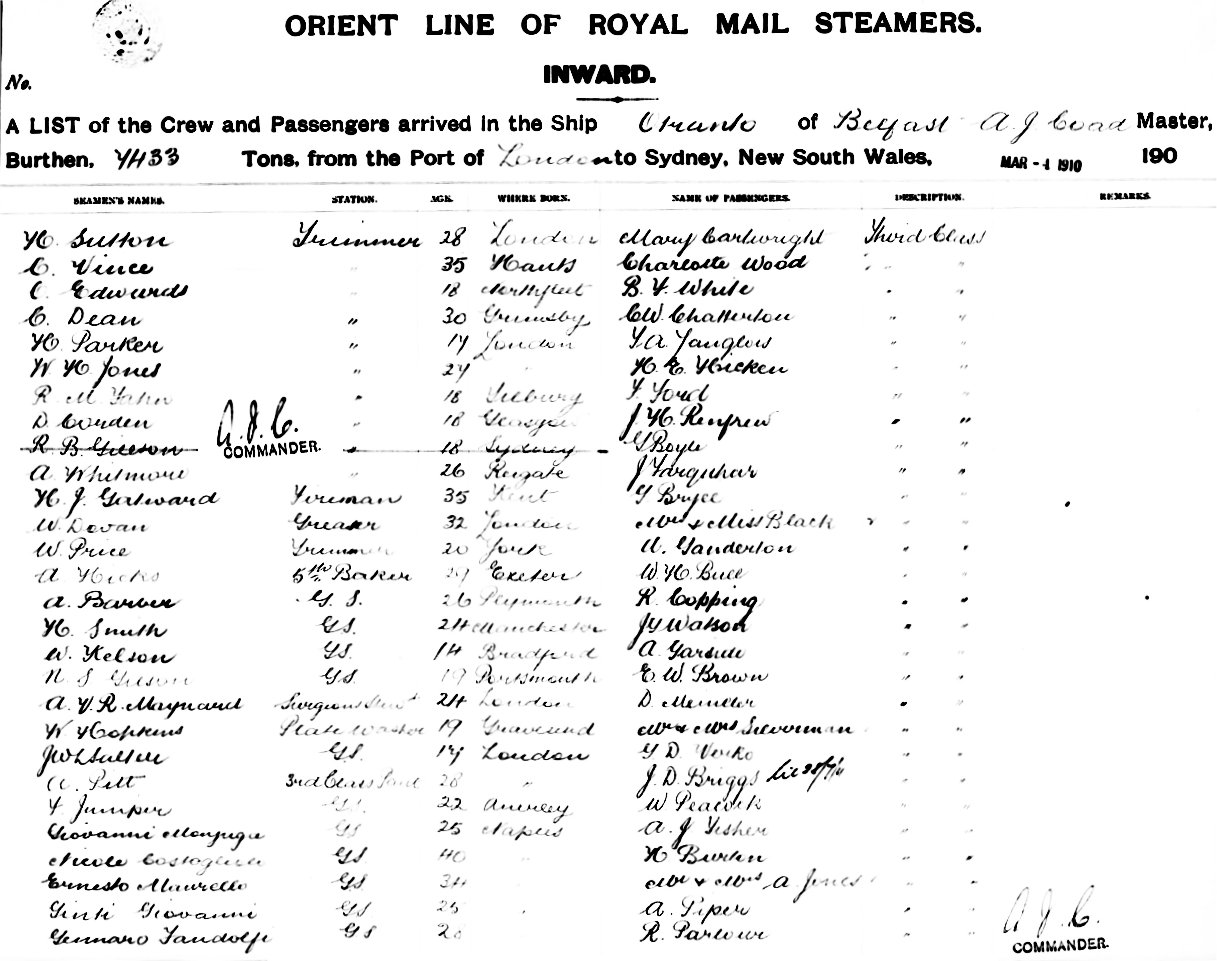 ORIENT LINE OF ROYAL MAIL STEAMERS.
INWARD.
No.
A LIST of the Crew and Passengers arrived in the Ship Otranto of Belfast A. J. Coad Master,
Burthen, 7433 Tons, from the Port of London to Sydney, New South Wales, MAR -4 1910 190
SEAMEN'S NAMES. STATION. AGE. WHERE BORN. NAME OF PASSENGERS. DESCRIPTION. REMARKS.
H. Sutton Trimmer 28 London Mary Cartwright Third Class
C. Vince " 35 Hants Charlotte Wood " "
C. Edwards " 18 Northfleet B. F. White " "
C. Dean " 30 Grimsby C W. Chatterton " "
H. Parker " 19 London " "
W H Jones " 27 " H. E. Hicken " "
R. M. " 18 Tilbury F. Ford " "
D. Corden " 18 Glasgow J. H. Renfrew " "
R B. Gleeson " 18 Sydney G Boyle " "
A. J. C.
COMMANDER.
A Whitmore " 26 Reigate J Farquhar " "
H. J. Fireman 35 Kent G Bryce " "
W. Greaser 32 London Mrs & Miss Black " "
W. Price Trimmer 20 York Ganderton " "
A Hicks 5th Baker 29 Exeter W. H. Bull " "
A. Barber G. S. 26 Plymouth R. Copping " "
H. Smith G.S. 24 Manchester Watson " "
W. Nelson G.S. 19 Bradford A. " "
G.S. 19 Portsmouth E. W. Brown " "
A. V. R. Maynard 24 London D. " "
W Hopkins Plate Washer 19 Gravesend Mr & Mrs Silverman " "
G.S. 19 London G. D. " "
Pitt 3rd Class 28 " J. D. Briggs " "
F. Jumper G.S. 22 Anerley W Peacock " "
Giovanni G.S. 25 Naples A. J Fisher " "
G.S. 40 " H Burton " "
Ernesto G.S. 34 Mr & Mrs A. Jones " "
Giovanni G.S. 25 " A. Piper " "
Gennaro G.S. R. Parlour " "
A. J. C.
COMMANDER.